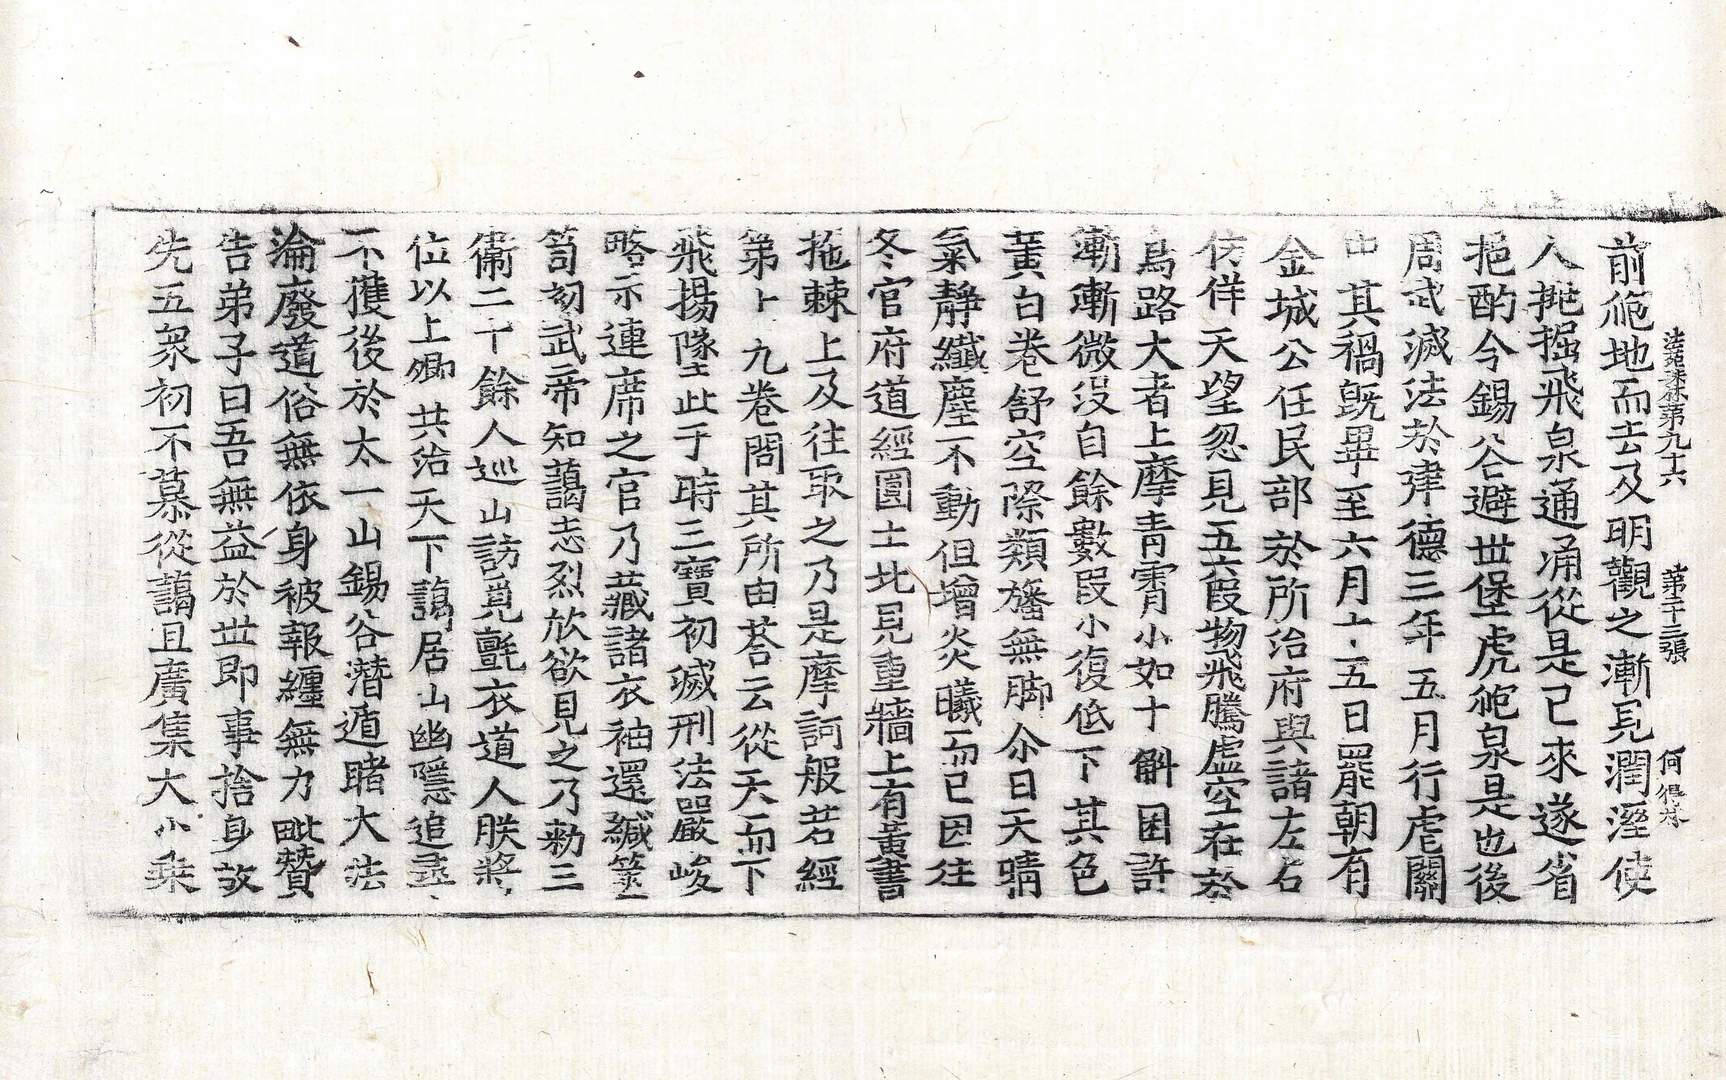 法苑珠林第九十六 第二十三張 何得林
前跑地而去及明觀之漸見潤溼使
人挹掘飛泉通涌從是已來遂省
挹酌今錫谷避世堡虎跑泉是也後
周武滅法於建德三年五月行虐關
中其禍旣畢至六月十五日罷朝有
金城公任民部於所治府與諸左右
仿佯天望忽見五六段物飛騰虛空在於
鳥路大者上摩青霄小如十斛囷許
漸漸微沒自餘數段小復低下其色
黃白卷舒空際類旛無脚尒日天晴
氣靜纖塵不動但增炎曦而已因往
冬官府道經圓土北見重牆上有黃書
拖棘上及往取之乃是摩訶般若經
第十九卷問其所由荅云從天而下
飛揚墜此于時三寶初滅刑法嚴峻
略示連席之官乃藏諸衣袖還緘篋
笥初武帝知藹志烈欣欲見之乃勑三
衞二十餘人巡山訪覓氈衣道人朕將
位以上卿共治天下藹居山幽隱追尋
不獲後於太一山錫谷潛遁睹大法
淪廢道俗無依身被報纏無力毗贊
告弟子曰吾無益於世即事捨身故
先五衆初不慕從藹且廣集大小乘